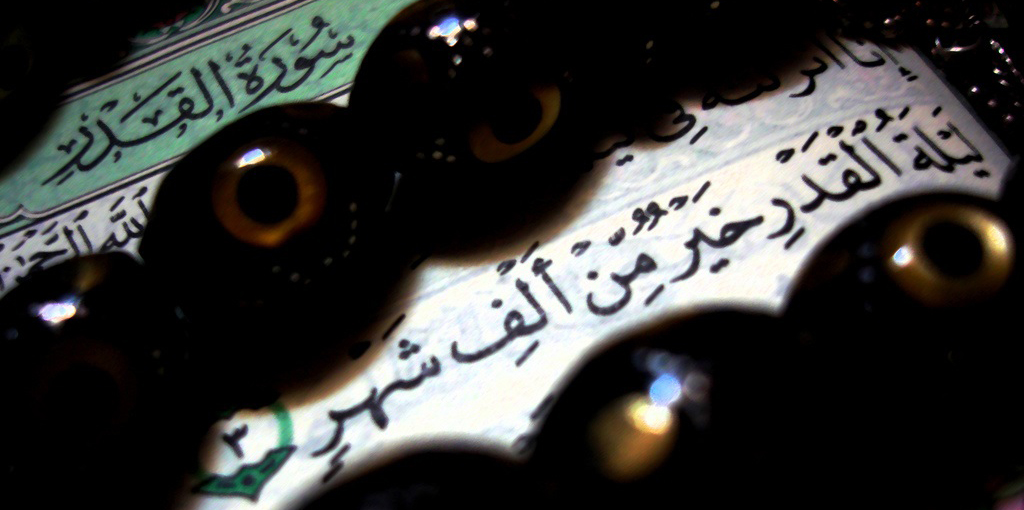 سُورَةُ القَدْرِ
اللَّهِ الرَّحْمَٰنِ
إِنَّا أَنزَلْنَاهُ فِي
لَيْلَةُ الْقَدْرِ خَيْرٌ مِّنْ أَلْفِ شَهْرٍ ٣